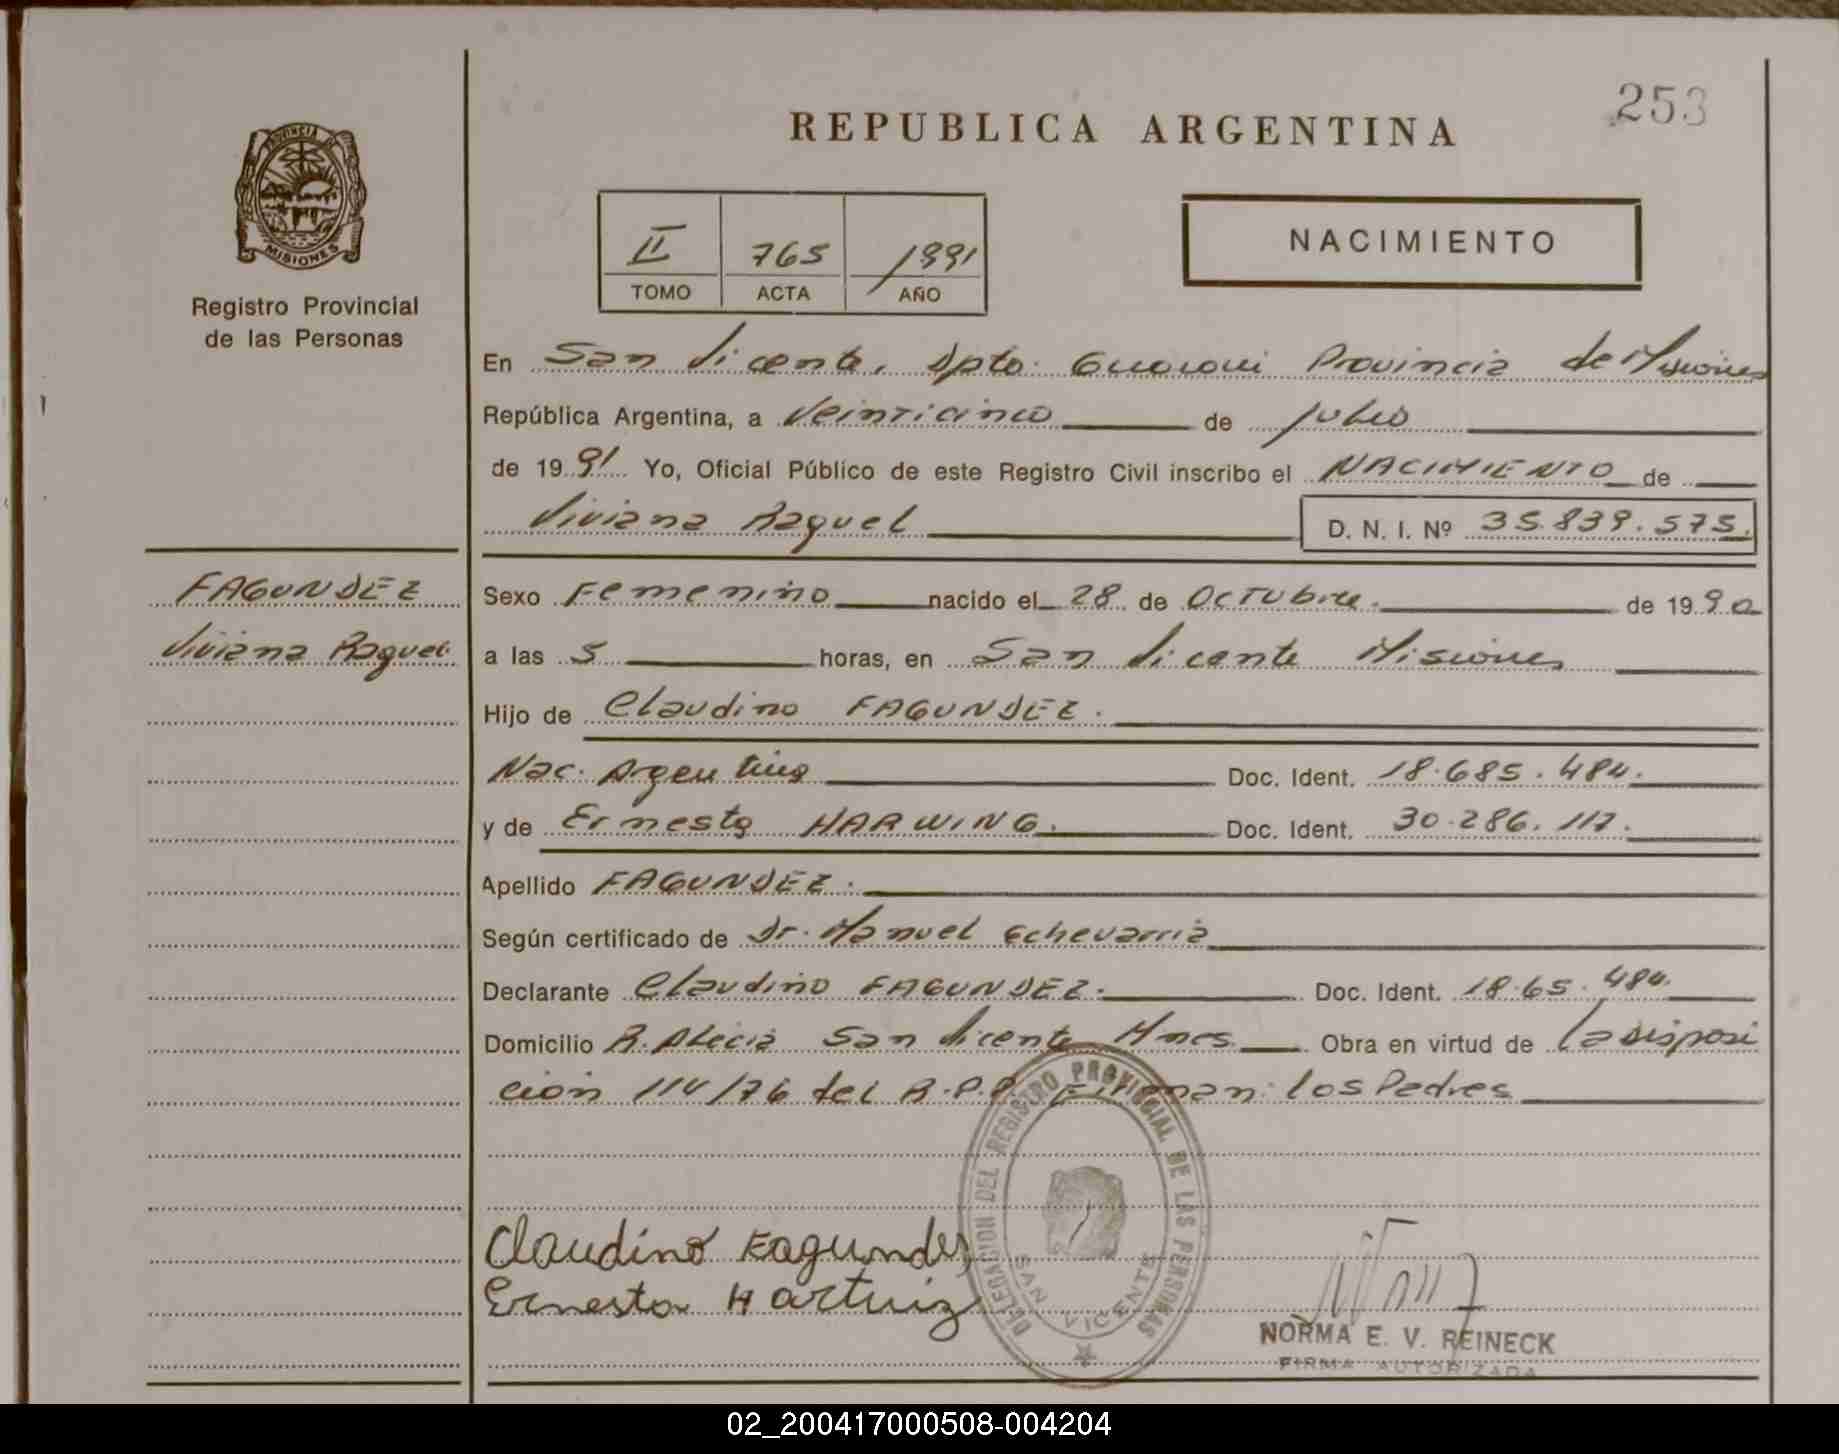 253
REPUBLICA ARGENTINA
PROVINCIA DE
MISIONES
II 765 1991
TOMO ACTA AÑO
NACIMIENTO
Registro Provincial
de las Personas
En San Vicente, Dpto. Guarani Provincia de Misiones
República Argentina, a Veinticinco de julio
de 1991 Yo, Oficial Público de este Registro Civil inscribo el NACIMIENTO de
Viviana Raquel D. N. I. Nº 35.839.575.
FAGUNDEZ
Viviana Raquel
Sexo Femenino nacido el 28 de Octubre. de 1990
a las 5 horas, en San Vicente Misiones
Hijo de Claudino FAGUNDEZ.
Nac. Argentina Doc. Ident. 18.685.484.
y de Ernesta HARWING. Doc. Ident. 30.286.117.
Apellido FAGUNDEZ.
Según certificado de Dr. Manuel Echevarria
Declarante Claudino FAGUNDEZ. Doc. Ident. 18.65.484.
Domicilio San Vicente Mnes. Obra en virtud de la disposi
ción 114/76 del R.P.P. Firman: los Padres
Claudino Fagundez
Ernesta Hartuiz
DELEGACION DEL REGISTRO PROVINCIAL DE LAS PERSONAS
SAN VICENTE
NORMA E. V. REINECK
FIRMA AUTORIZADA
02_200417000508-004204